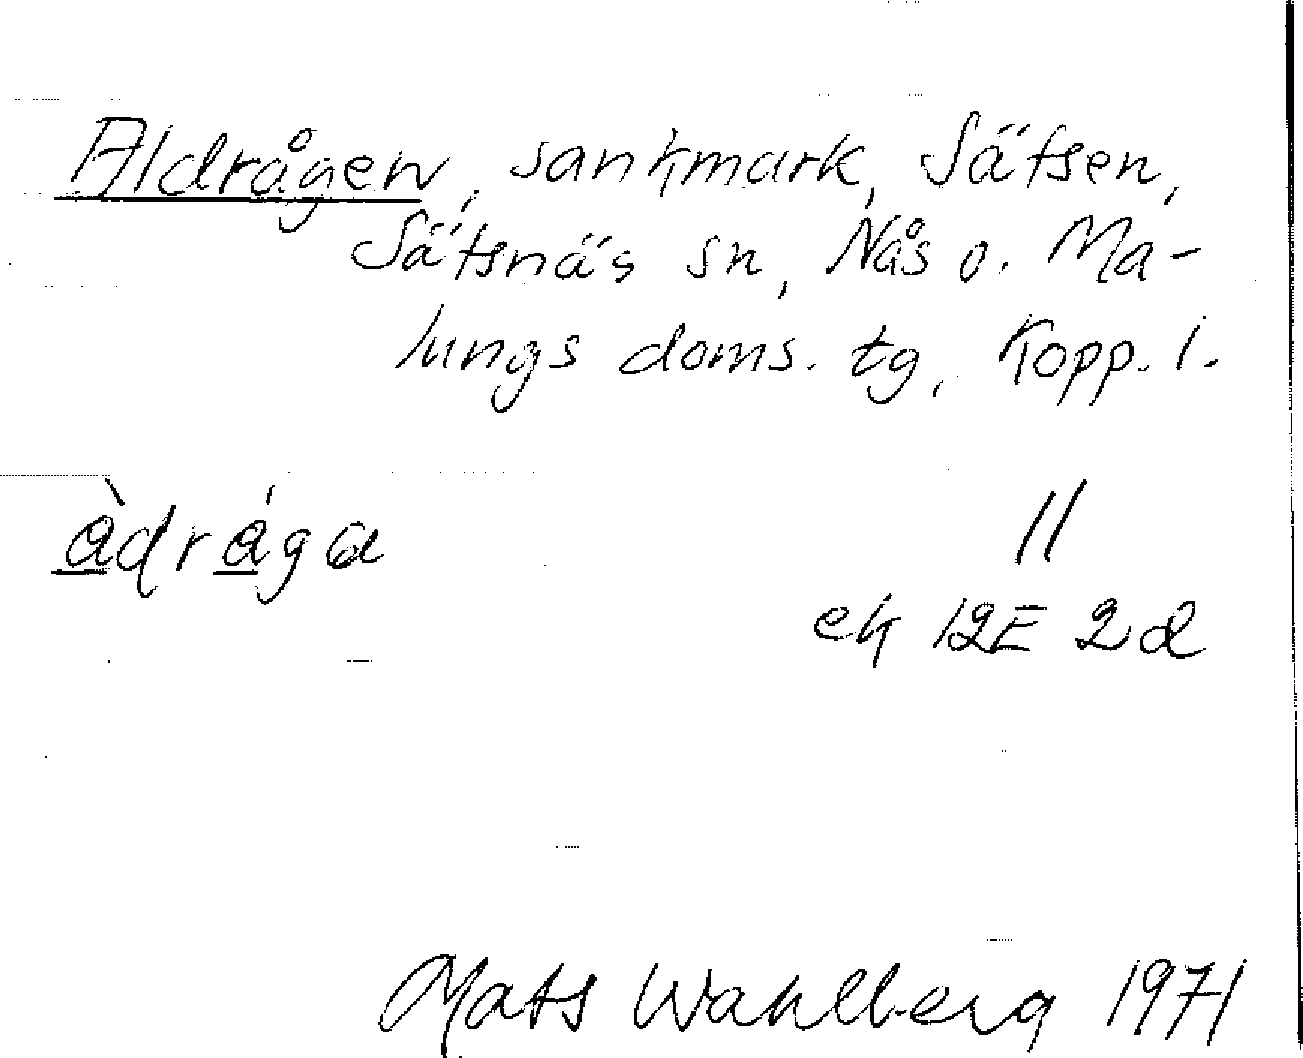 Aldrågen, sankmark, Sätsen,
Sätsnäs sn, Nås o. Ma-
lungs doms. tg, Kopp. l.
àdrága
//
ek 12E 2d
Mats Wahlberg 1971